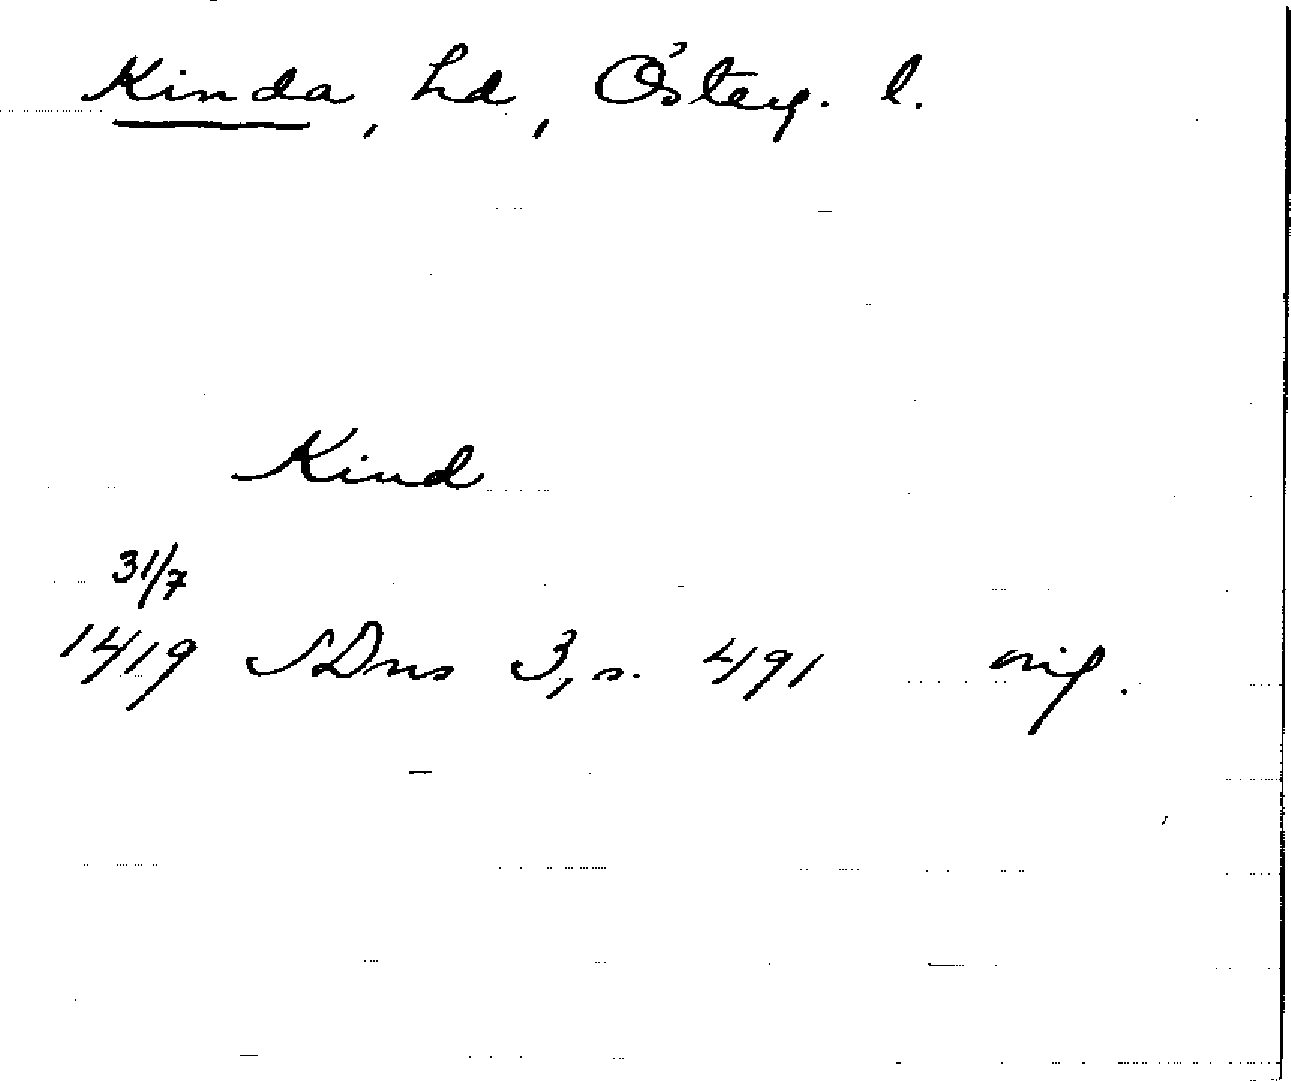 Kinda, hd, Österg. l.
Kind
31/7
1419 SDns 3, s. 491 orig.